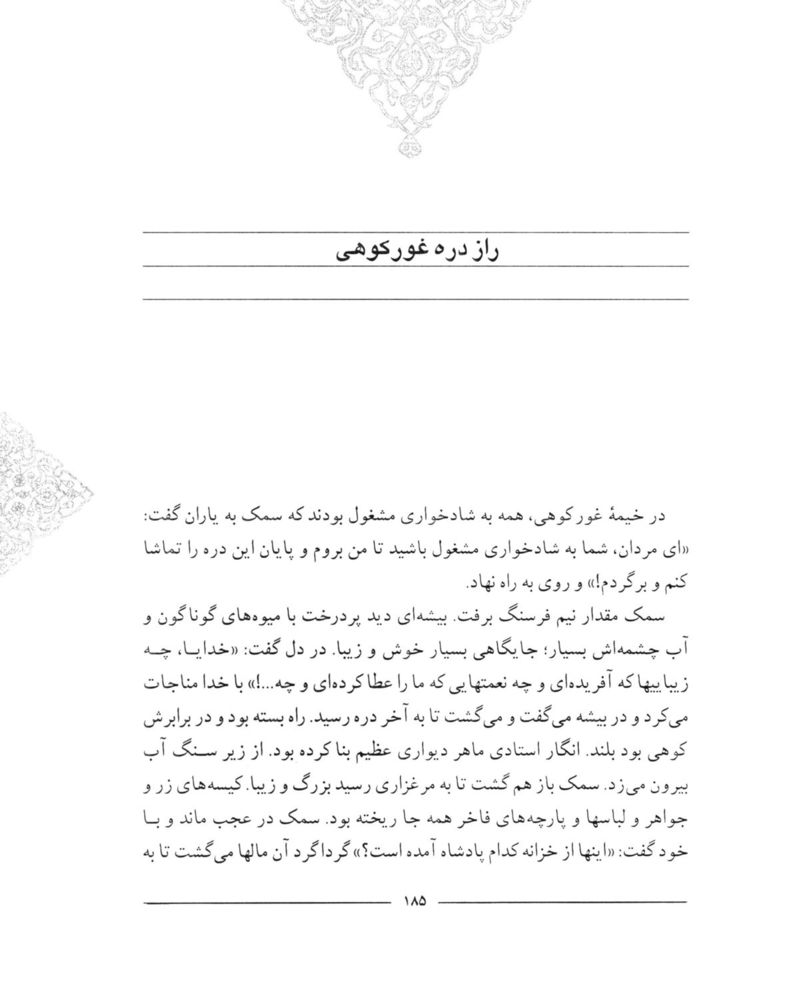 راز دره غورکوهی
در خیمهٔ غورکوهی، همه به شادخواری مشغول بودند که سمک به یاران گفت:
«ای مردان، شما به شادخواری مشغول باشید تا من بروم و پایان این دره را تماشا
کنم و برگردم!» و روی به راه نهاد.
سمک مقدار نیم فرسنگ برفت. بیشه‌ای دید پردرخت با میوه‌های گوناگون و
آب چشمه‌اش بسیار؛ جایگاهی بسیار خوش و زیبا. در دل گفت: «خدایـا، چـه
زیباییها که آفریده‌ای و چه نعمتهایی که ما را عطا کرده‌ای و چه...!» با خدا مناجات
می‌کرد و در بیشه می‌گفت و می‌گشت تا به آخر دره رسید. راه بسته بود و در برابرش
کوهی بود بلند. انگار استادی ماهر دیواری عظیم بنا کرده بود. از زیر سـنگ آب
بیرون می‌زد. سمک باز هم گشت تا به مرغزاری رسید بزرگ و زیبا. کیسه‌های زر و
جواهر و لباسها و پارچه‌های فاخر همه جا ریخته بود. سمک در عجب ماند و بـا
خود گفت: «اینها از خزانه کدام پادشاه آمده است؟» گرداگرد آن مالها می‌گشت تا به
۱۸۵